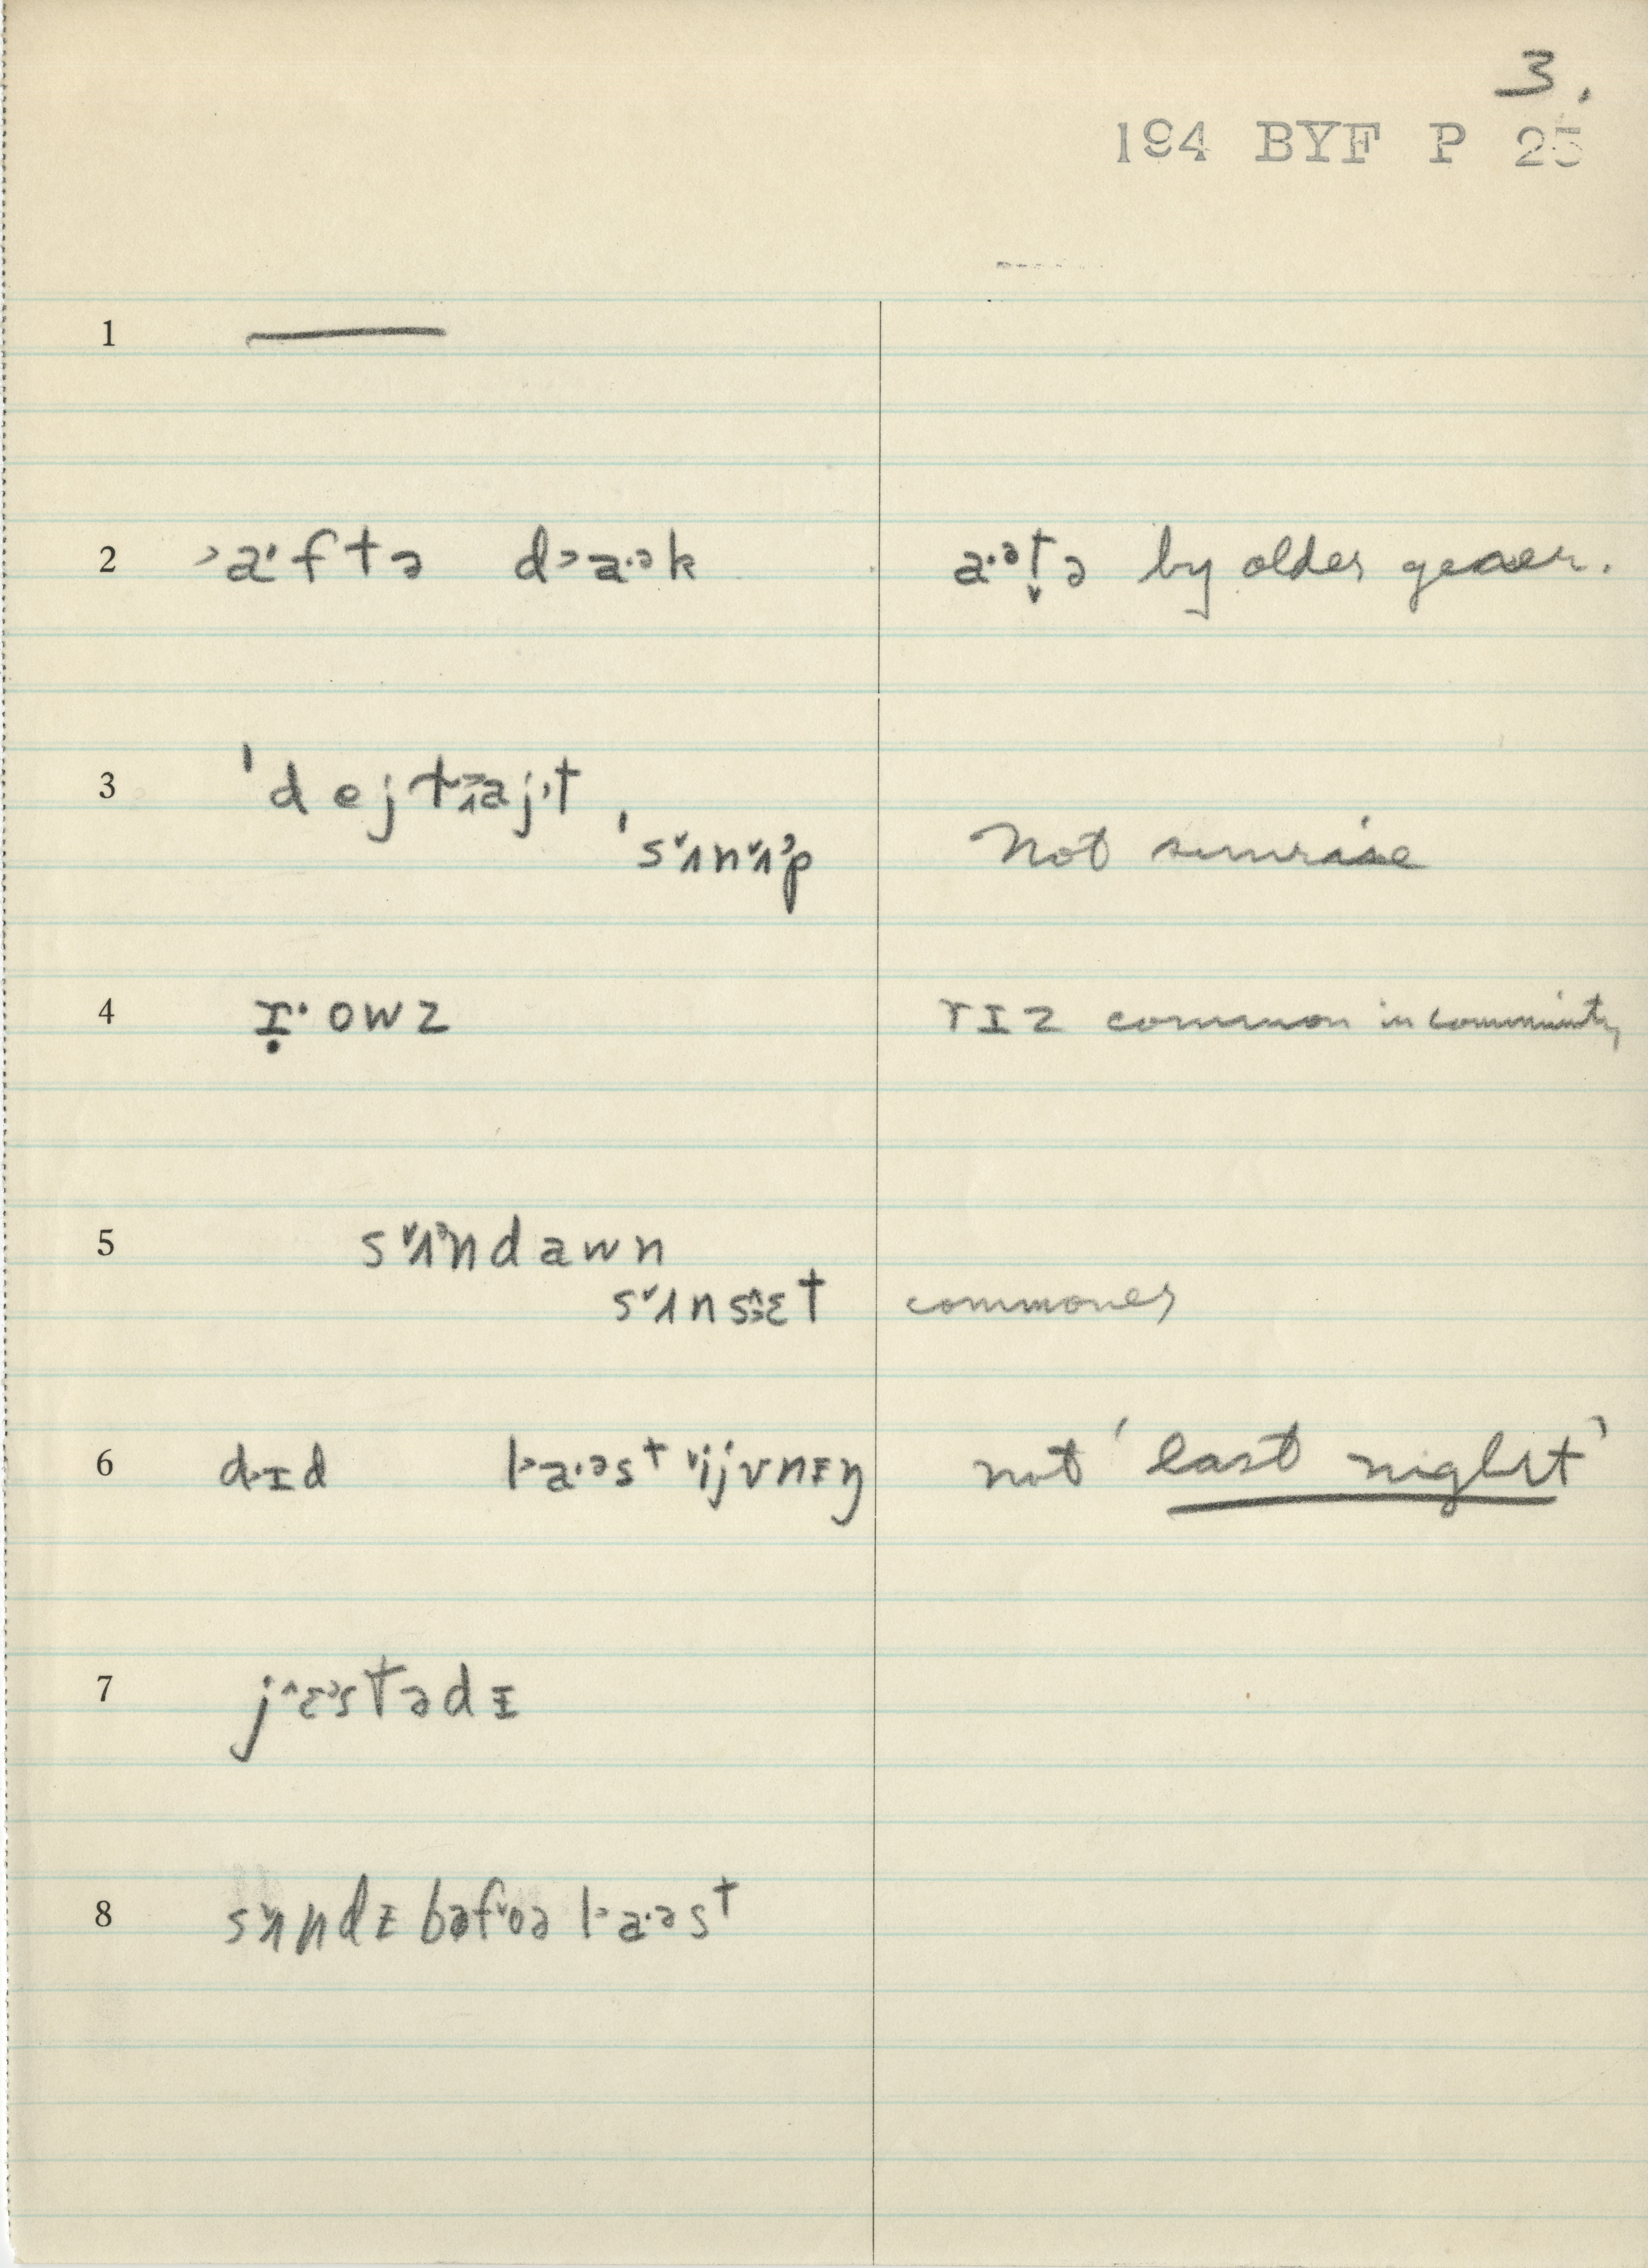 3.
194 BYF P 25
1 —
2 ˃a·ftə d˃a·ək a·ətˬə by older gener.
3 ˈdejtɹajt
ˈsʌnʌp Not sunrise
4 ɪ̣·owz rɪz common in community
5 sʌndawn
sʌnsɛt commoner
6 dɪd l˃a·əst ijvnɪŋ not 'last night'
7 j^ɛəstədɪ
8 sʌndɪ bəfoə l˃a·əst